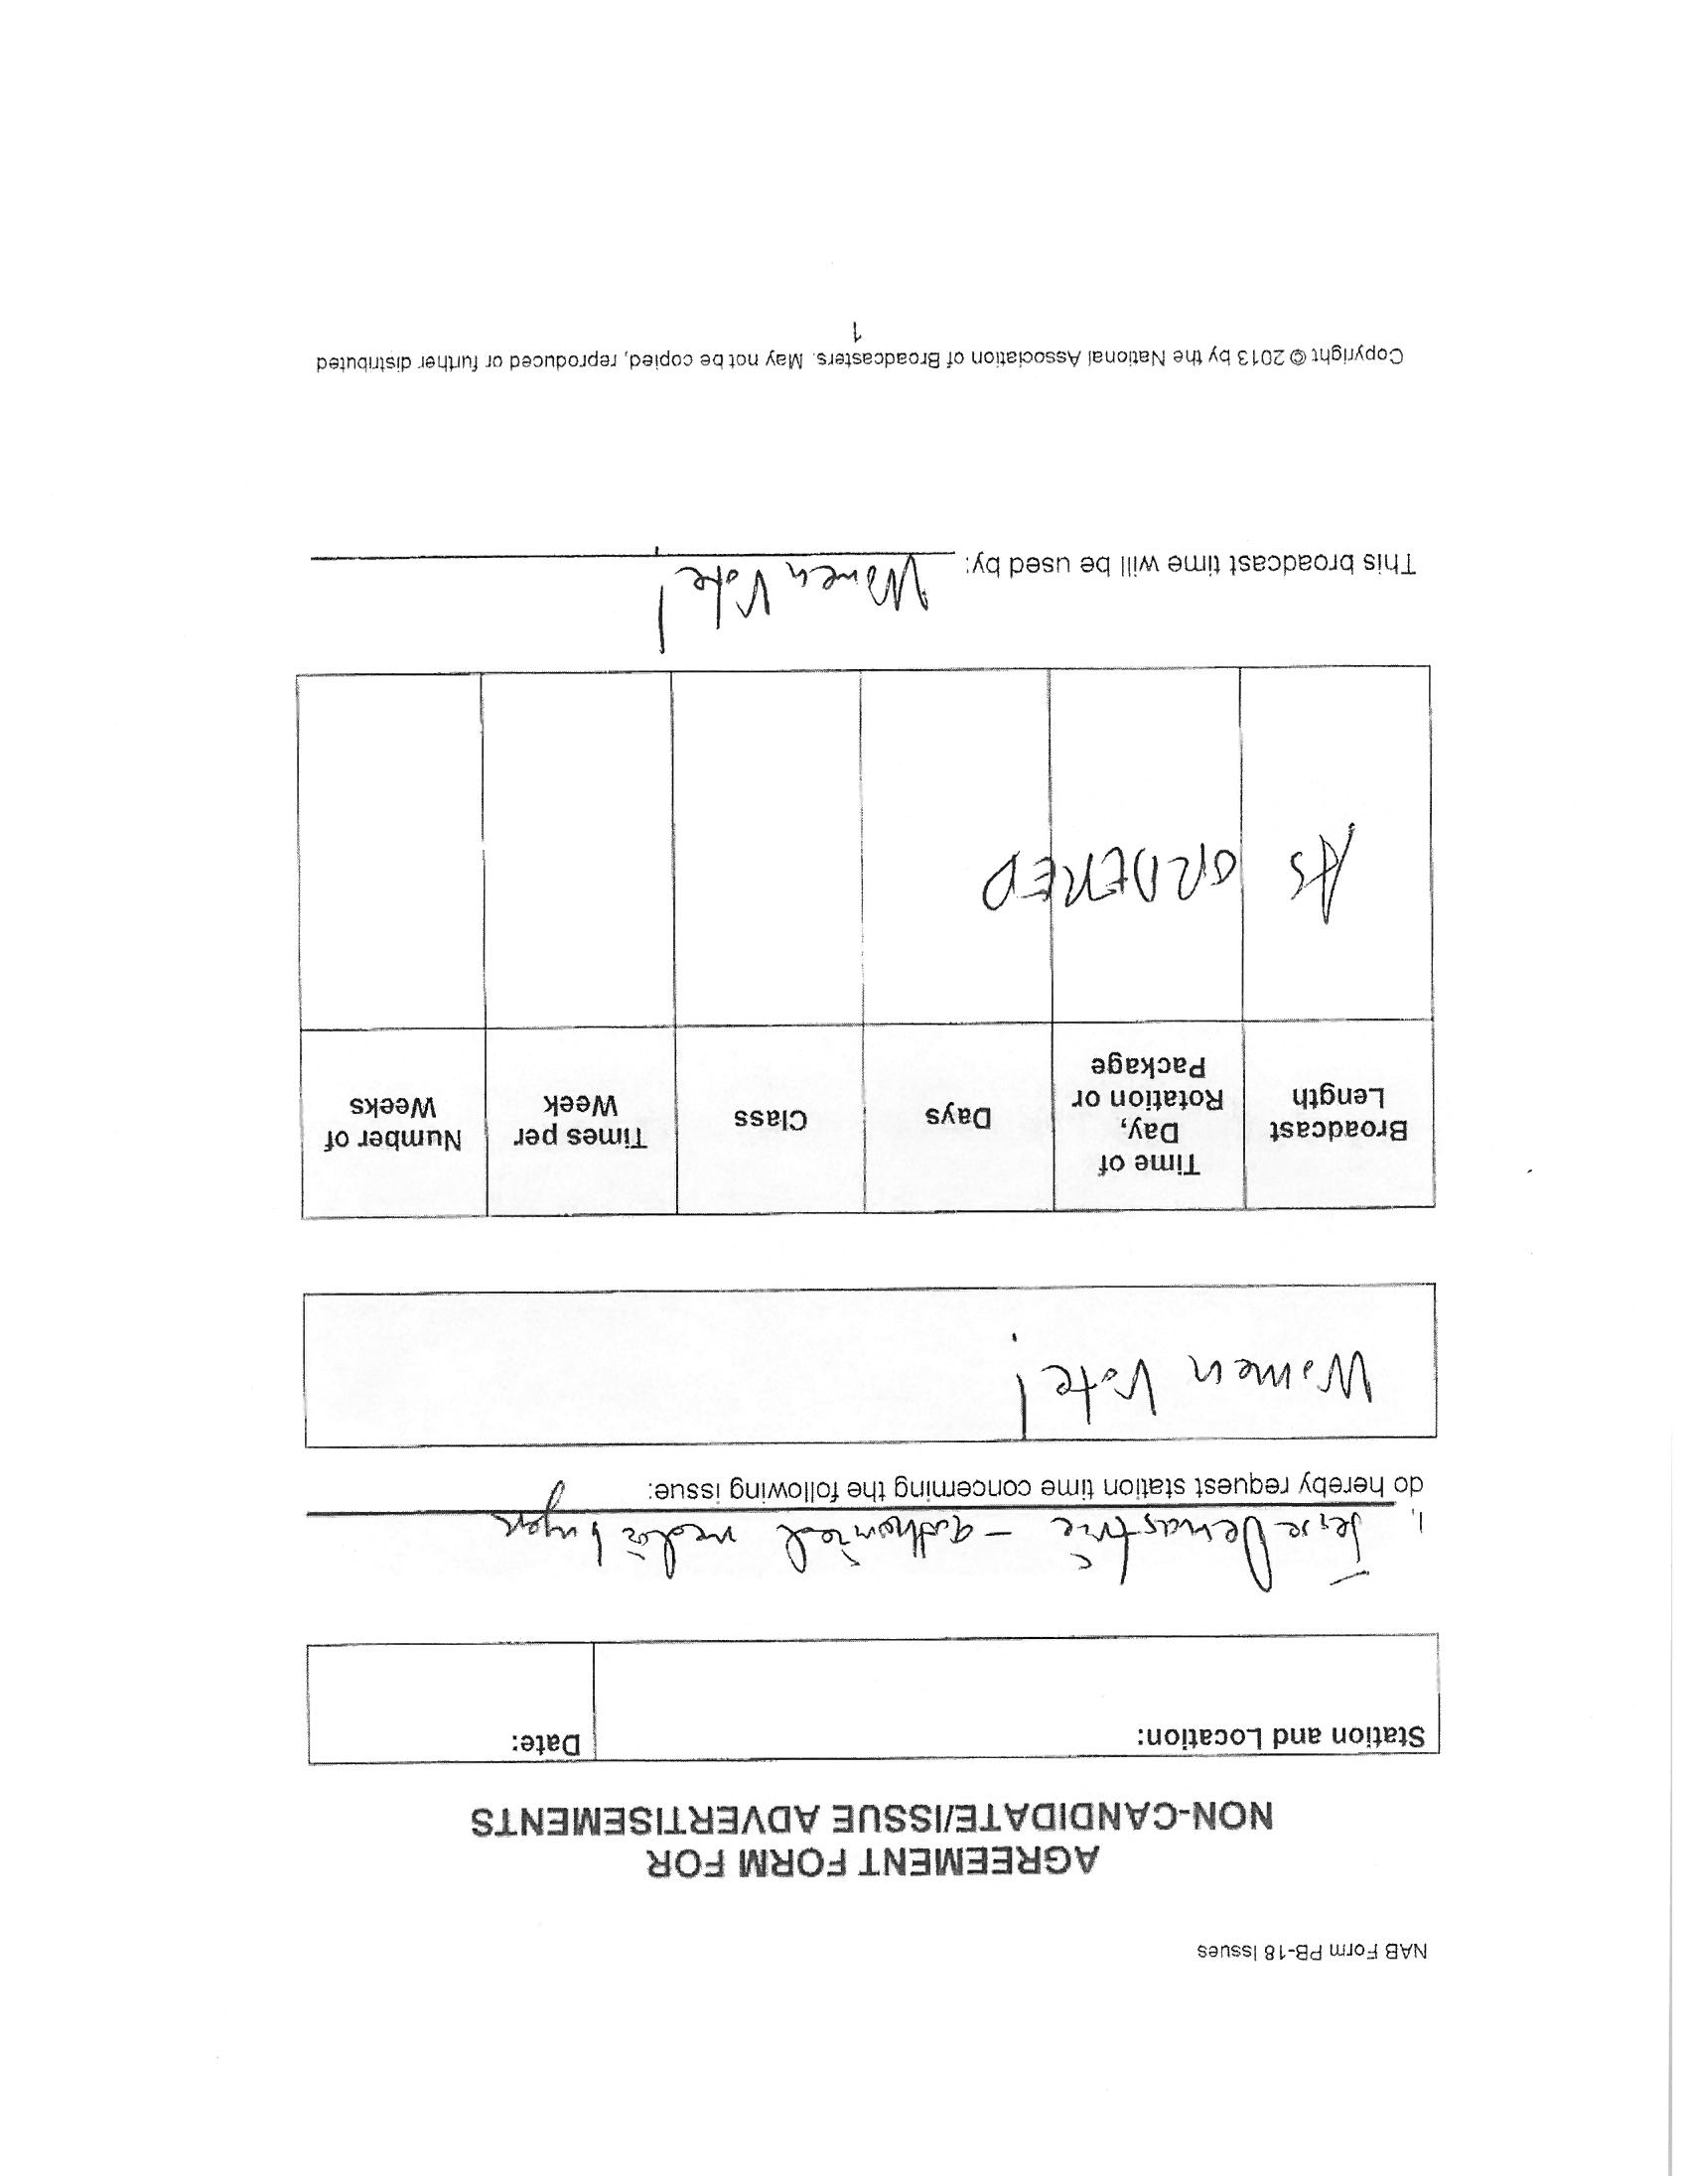 NAB Form PB-18 Issues
AGREEMENT FORM FOR
NON-CANDIDATE/ISSUE ADVERTISEMENTS
Station and Location:
Date:
I, - authorized media buyer
do hereby request station time concerning the following issue:
Women Vote!
Broadcast Length
Time of Day, Rotation or Package
Days
Class
Times per Week
Number of Weeks
AS ORDERED
This broadcast time will be used by: Women Vote!
Copyright © 2013 by the National Association of Broadcasters. May not be copied, reproduced or further distributed
1